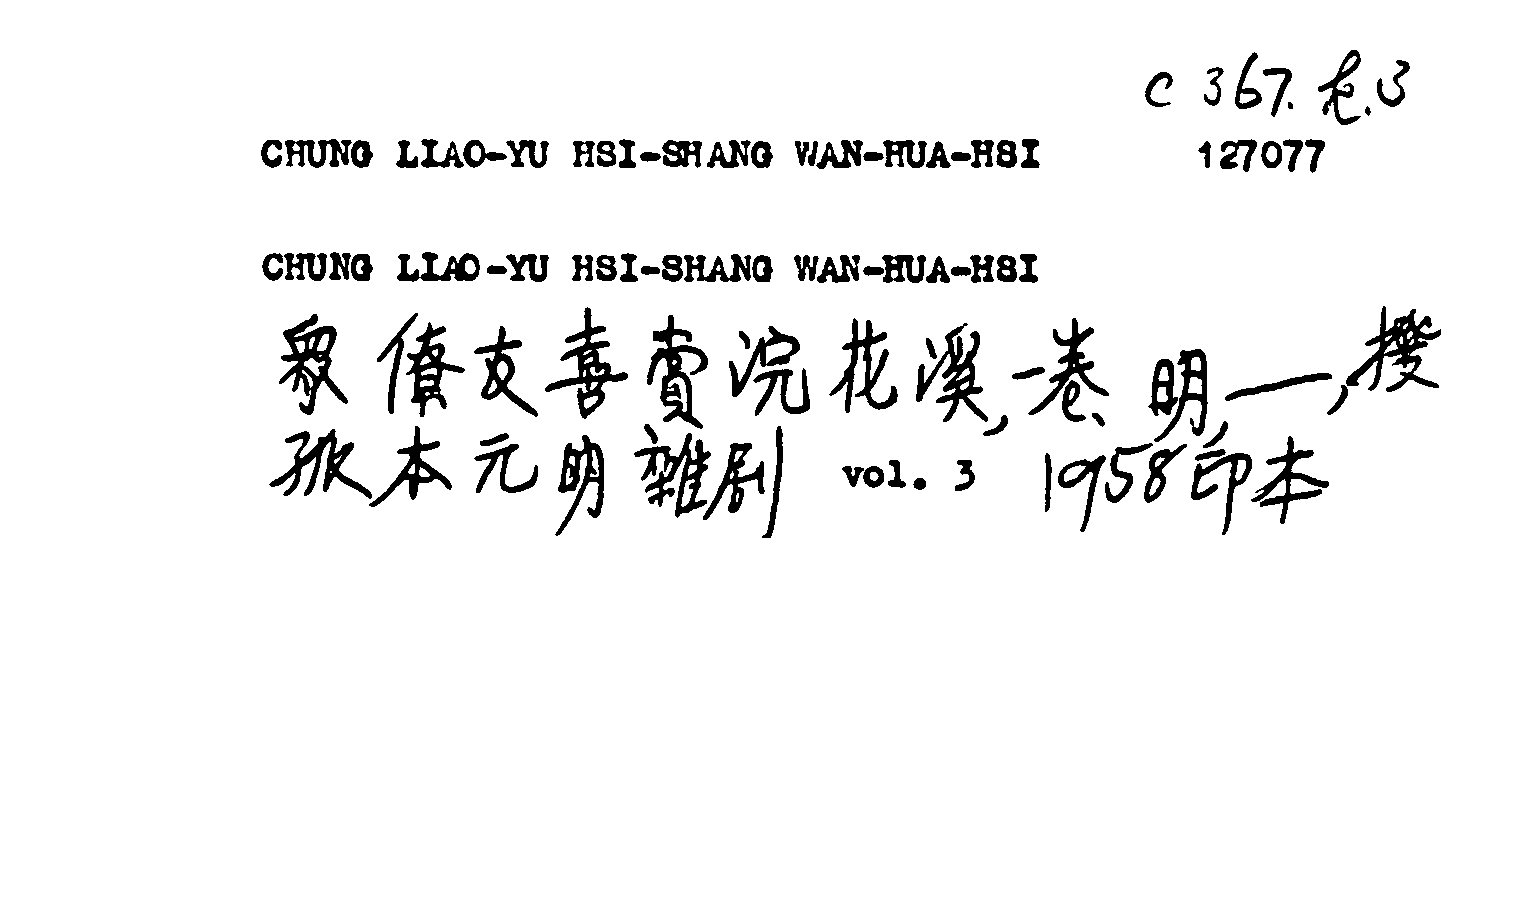 C 367.
CHUNG LIAO-YU HSI-SHANG WAN-HUA-HSI 127077
CHUNG LIAO-YU HSI-SHANG WAN-HUA-HSI
眾僚友喜賞浣花溪,一卷、明,——,
孤本元明雜剧 vol. 3 1958印本